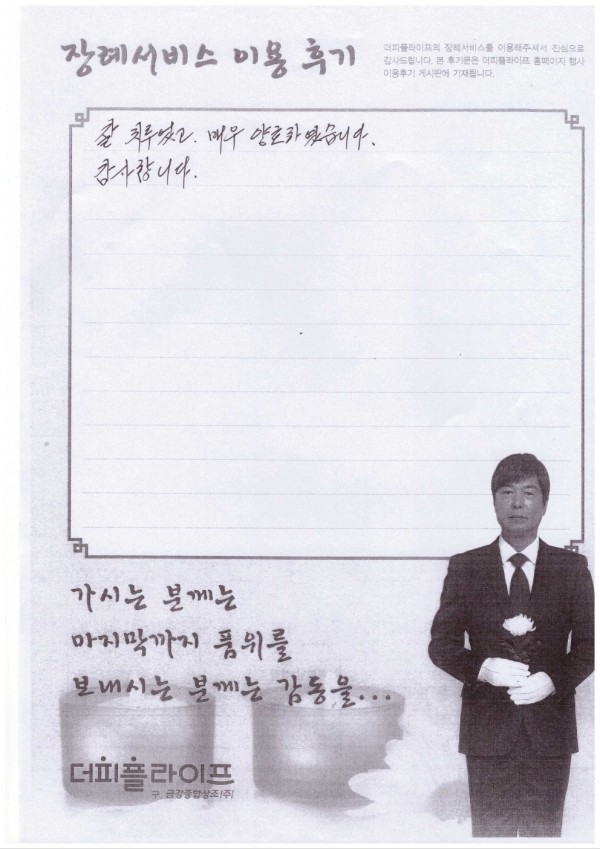 장례서비스 이용 후기
더피플라이프의 장례서비스를 이용해주셔서 진심으로
감사드립니다. 본 후기문은 더피플라이프 홈페이지 행사
이용후기 게시판에 기재됩니다.
잘 치루었고. 매우 양호하였습니다.
감사합니다.
가시는 분께는
마지막까지 품위를
보내시는 분께는 감동을...
더피플라이프
구. 금강종합상조(주)